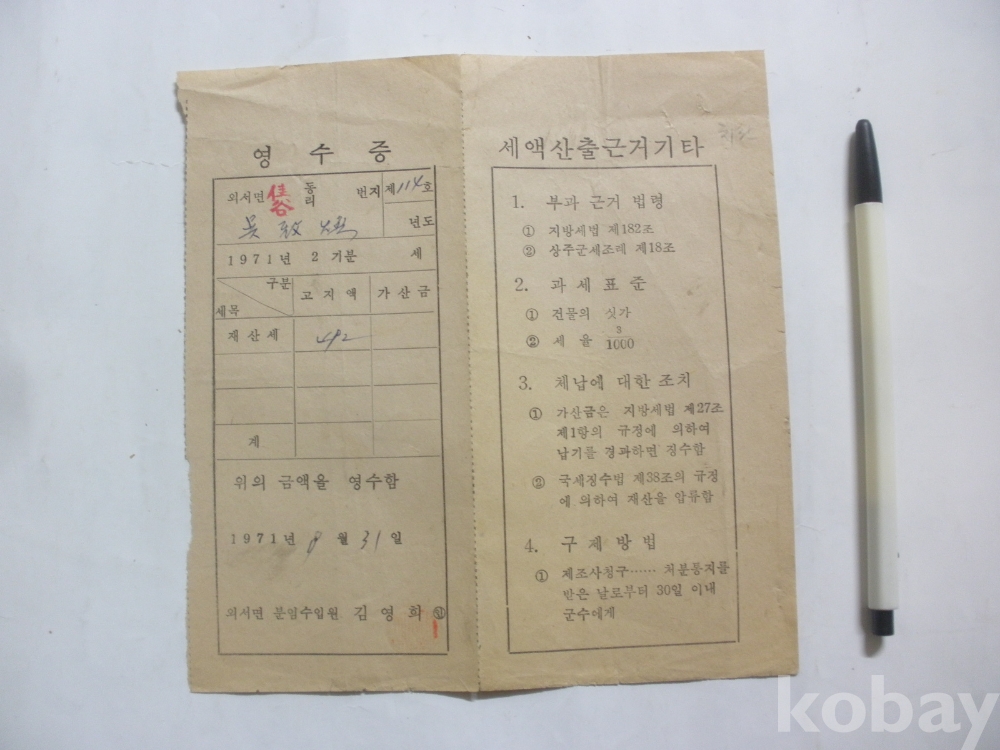 영 수 증
외서면 佳谷 동리 번지 제114호
吳 年도
1971년 2 기분 세
구분
세목
고지액 가산금
재산세 492
계
위의 금액을 영수함
1971년 8월 31일
외서면 분임수입원 김영희 인
세액산출근거기타
1. 부과 근거 법령
① 지방세법 제182조
② 상주군세조례 제18조
2. 과 세 표 준
① 건물의 싯가
② 세 율 3/1000
3. 체납에 대한 조치
① 가산금은 지방세법 제27조
제1항의 규정에 의하여
납기를 경과하면 징수함
② 국세징수법 제38조의 규정
에 의하여 재산을 압류함
4. 구 제 방 법
① 제조사청구…… 처분통지를
받은 날로부터 30일 이내
군수에게
kobay